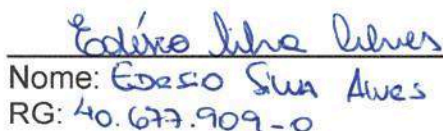 Edésio Silva Alves
Nome: EDESIO SILVA ALVES
RG: 40.677.909-0